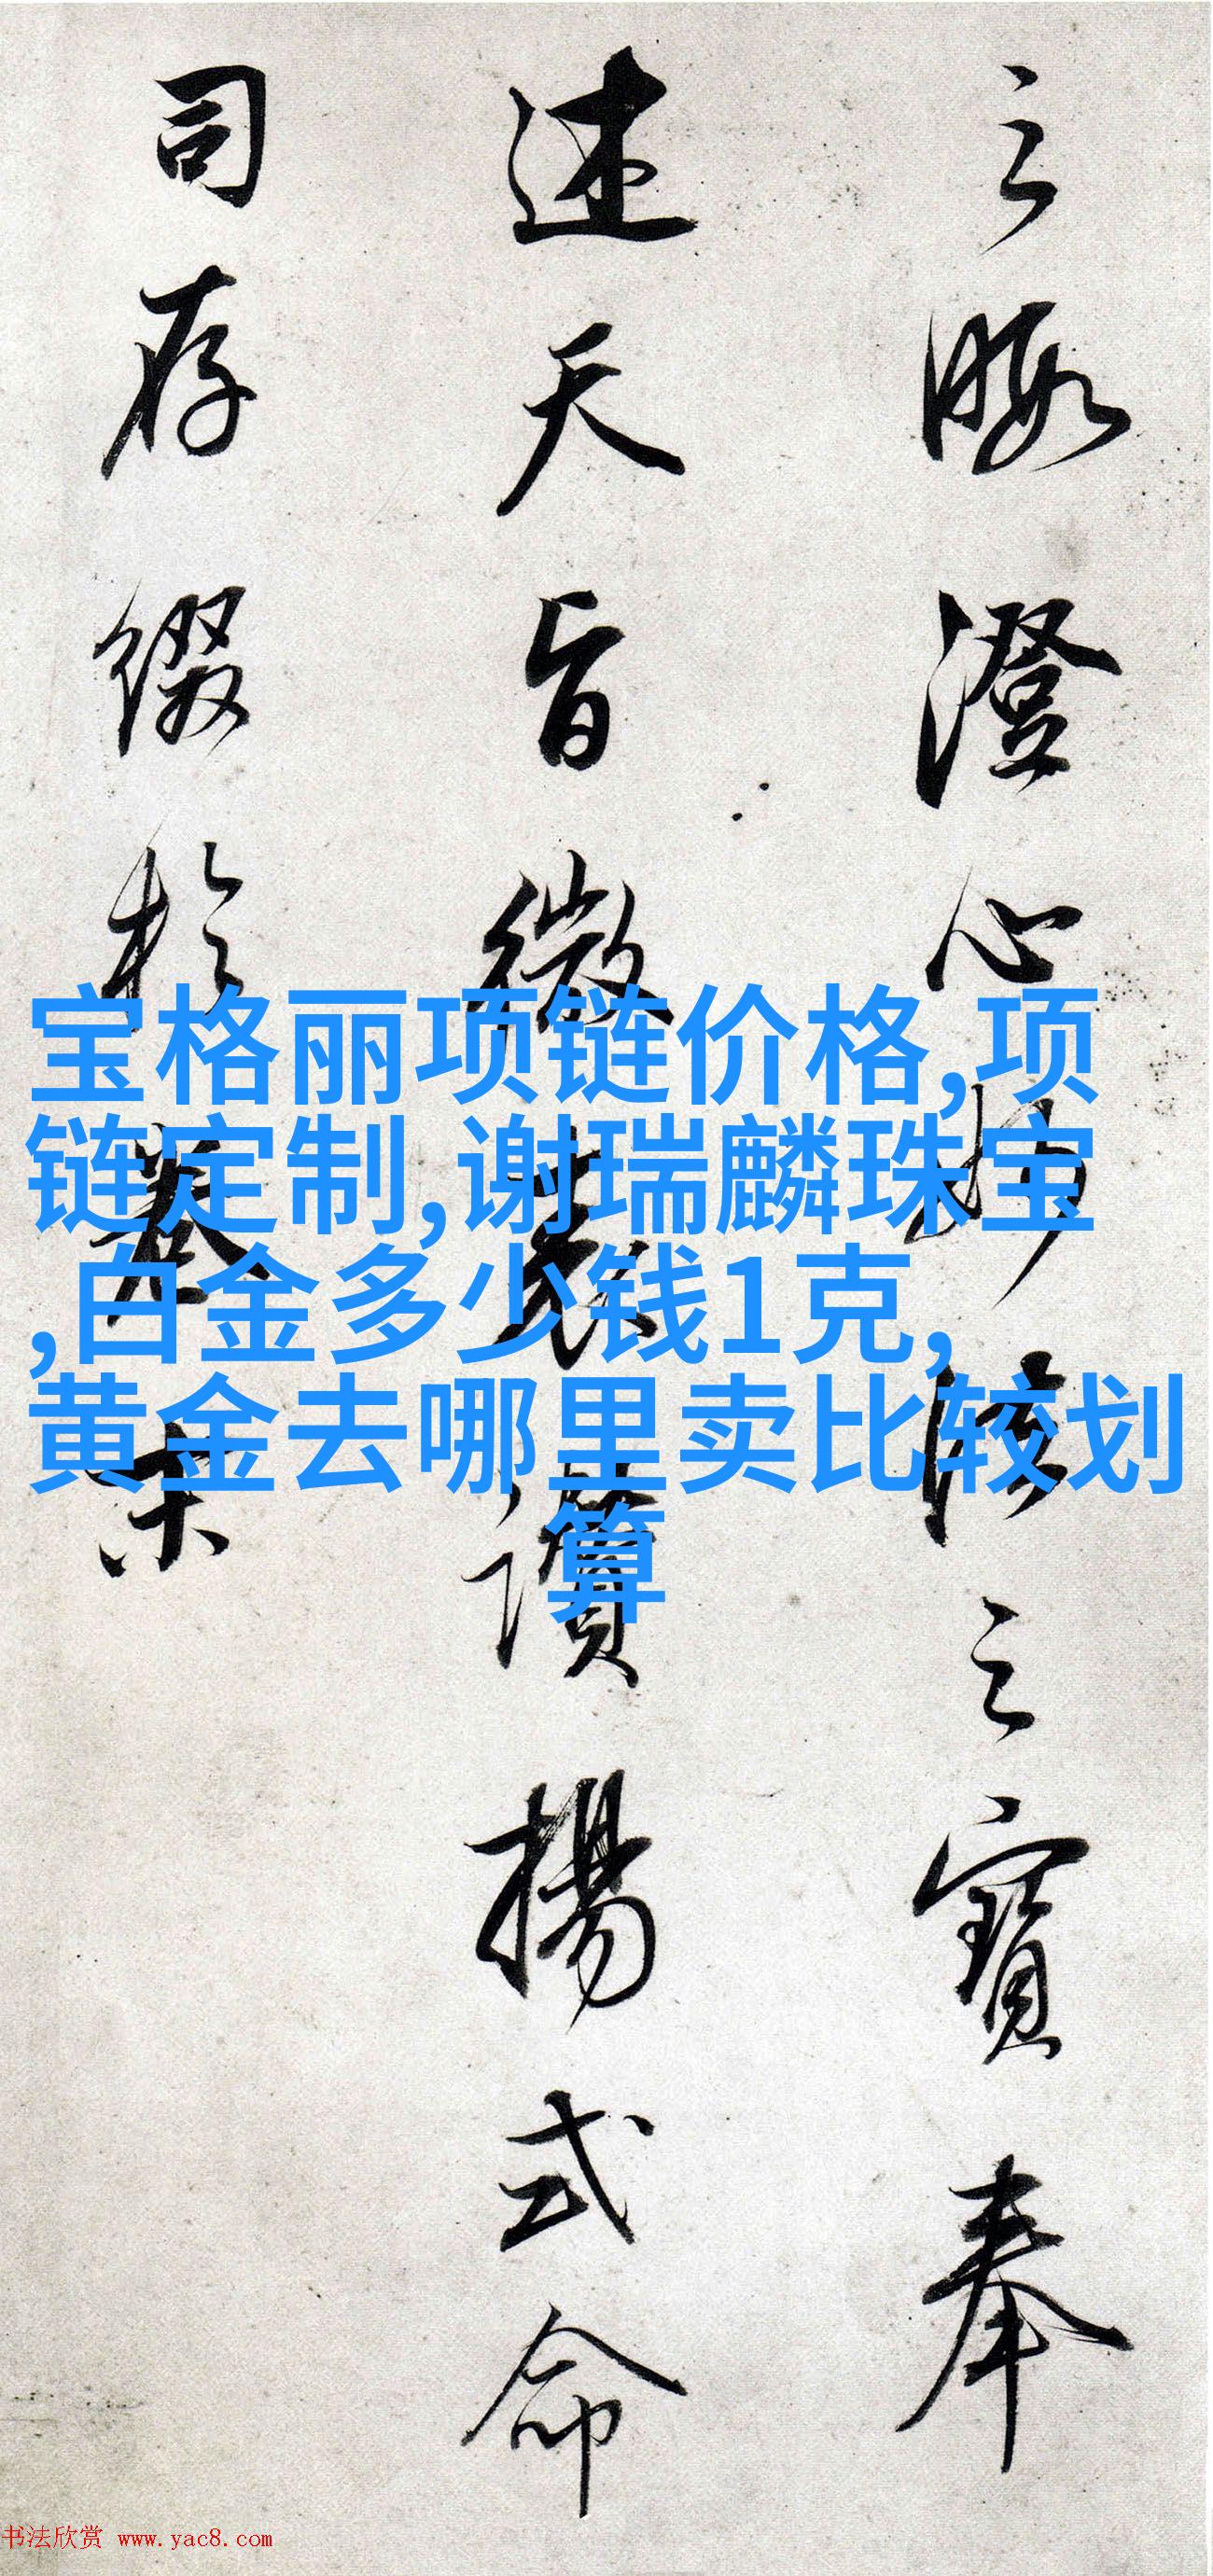 之暇澄心妙法之寶奉
述天旨微表讚揚式命
司存綴於卷末
宝格丽项链价格,项
链定制,谢瑞麟珠宝
,白金多少钱1克,
黄金去哪里卖比较划
算
书法欣赏 www.yac8.com